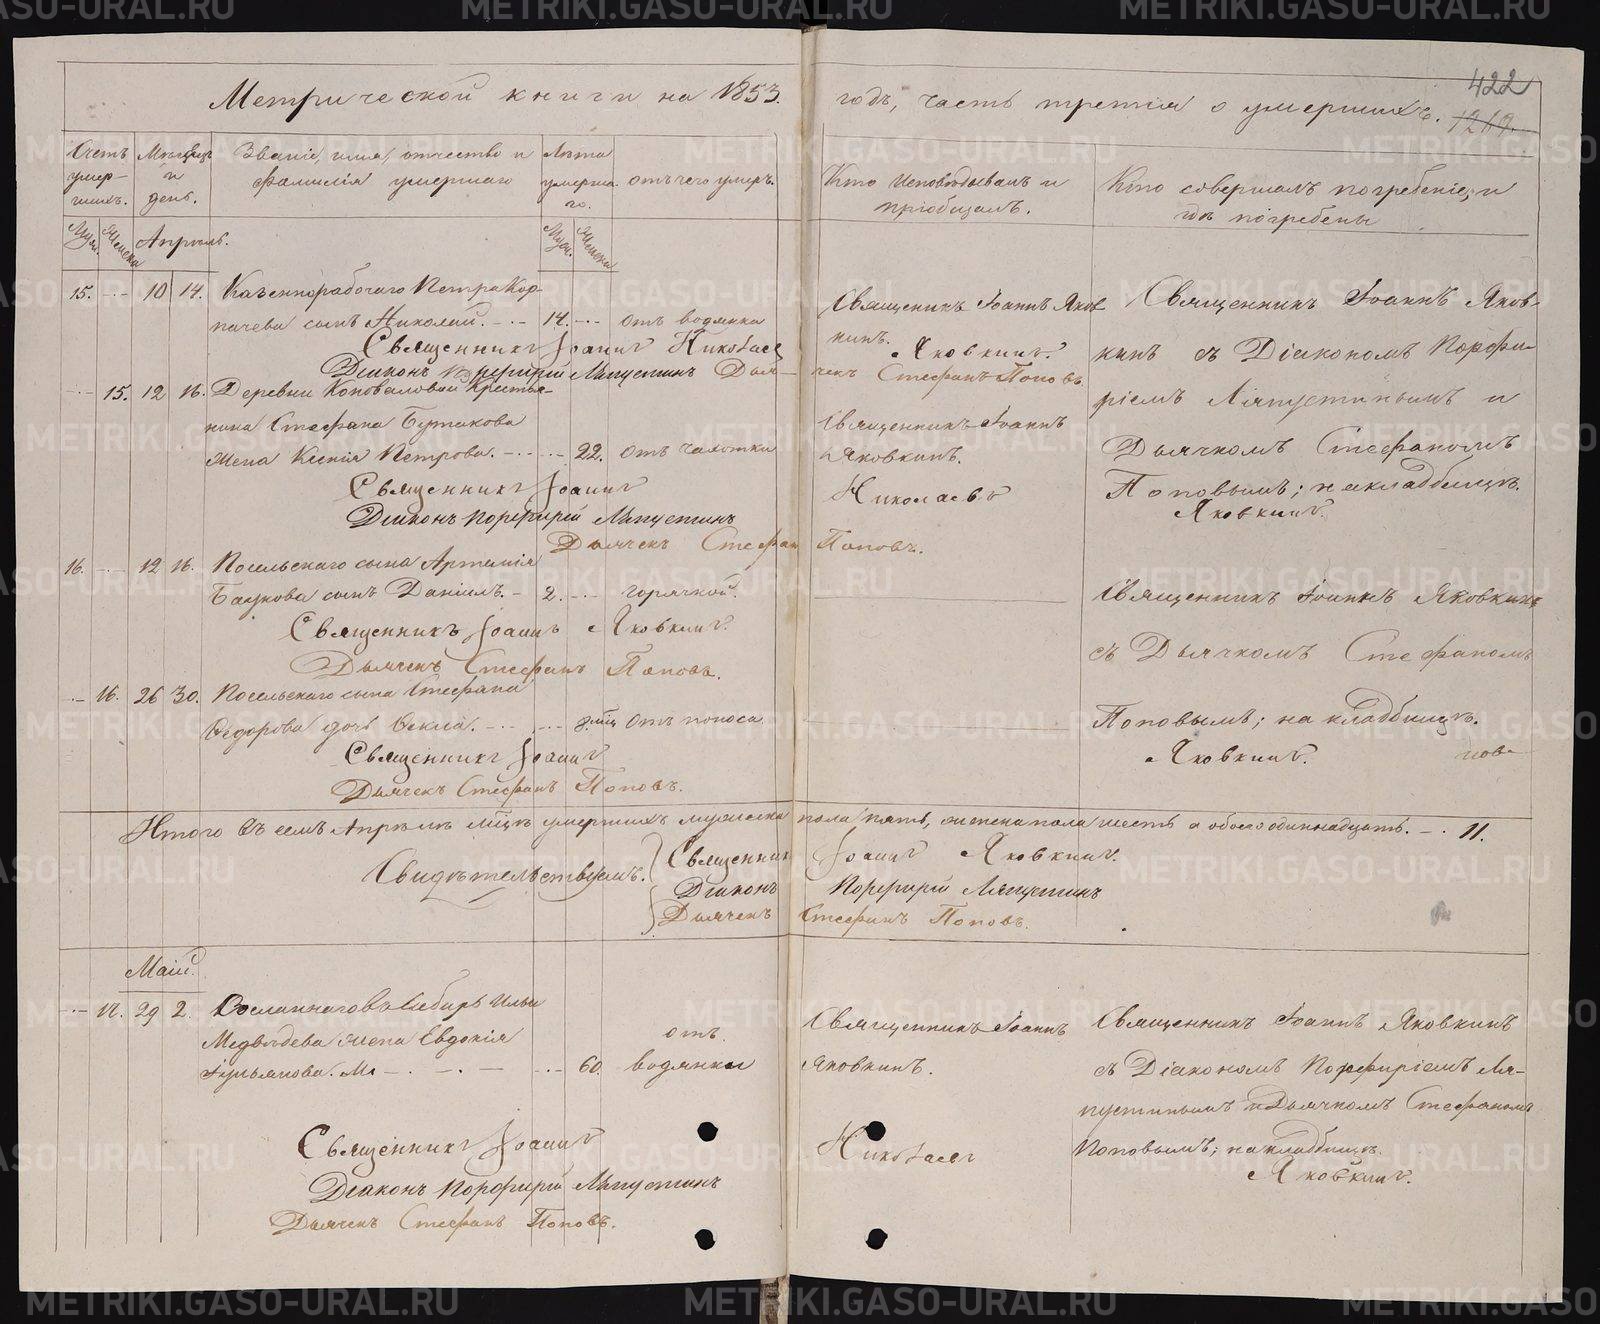 422
1269.
Метрической книги на 1853. годъ, часть третія о умершихъ.
Счетъ умер-шихъ.
Мѣсяцъ и день.
Званіе, имя, отчество и фамилія умершаго
Лѣта умерша.го.
отъ чего умеръ.
Кто исповѣдывалъ и пріобщалъ.
Кто совершалъ погребеніе, и гдѣ погребены
Муж. Женска
Апрѣль.
Муж. Женска
15. -·- 10 14. Казеннорабочаго Петра Кор-
пачева сынъ Николай. -·- 14. -·- отъ водянки
Священникъ Іоаннъ Яков
кинъ.
Священникъ Іоаннъ Яков-
кинъ съ Діакономъ Порфи-
ріемъ Ляпустинымъ и
Дьячкомъ Стефаномъ
Поповымъ; на кладбищѣ.
Яковкинъ.
Священникъ Іоаннъ Николаевъ Яковкинъ.
Діаконъ Порфирій Ляпустинъ Дья-чекъ Стефанъ Поповъ
-·- 15. 12 16. Деревни Коноваловой крестья-
нина Стефана Бутакова
жена Ксенія Петрова. -·- -·- 22. отъ чахотки
Священникъ Іоаннъ
Яковкинъ.
Священникъ Іоаннъ Николаевъ
Діаконъ Порфирій Ляпустинъ
Дьячекъ Стефан Поповъ.
16. -·- 12 16. Посельскаго сына Артемія
сынъ Даніилъ. - 2. -·- горячкой.
Священникъ Іоаннъ Яковкинъ
съ Дьячкомъ Стефаномъ
Поповымъ; на кладбищѣ.
Яковкинъ.
Священникъ Іоаннъ Яковкинъ.
Дьячекъ Стефанъ Поповъ.
-·- 16. 26 30. Посельскаго сына Стефана
Ѳедорова дочь Ѳекла. -·- -·- 8. мѣц отъ поноса
Священникъ Іоаннъ
Дьячекъ Стефанъ Поповъ.
Итого въ семъ Апрѣлѣ мѣцѣ умершихъ мужеска пола пять, женска пола шесть а обоего одиннадцать. -·- 11.
Свидѣтельствуемъ.
Священникъ Іоаннъ Яковкинъ.
Діаконъ Порфирій Ляпустинъ
Дьячекъ Стефанъ Поповъ.
Маій.
-·- 17. 29 2. Сосланнаго въ Сибирь Ильи
Медвѣдева жена Евдокія
-·- 60. отъ водянки
Священникъ Іоаннъ
Яковкинъ.
Священникъ Іоаннъ Яковкинъ
съ Діакономъ Порфиріемъ Ля-
пустинымъ и Дьячкомъ Стефаномъ
Поповымъ; на кладбищѣ.
Яковкинъ.
Священникъ Іоаннъ Николаевъ
Діаконъ Порфирій Ляпустинъ
Дьячекъ Стефанъ Поповъ.
METRIKI.GASO-URAL.RU